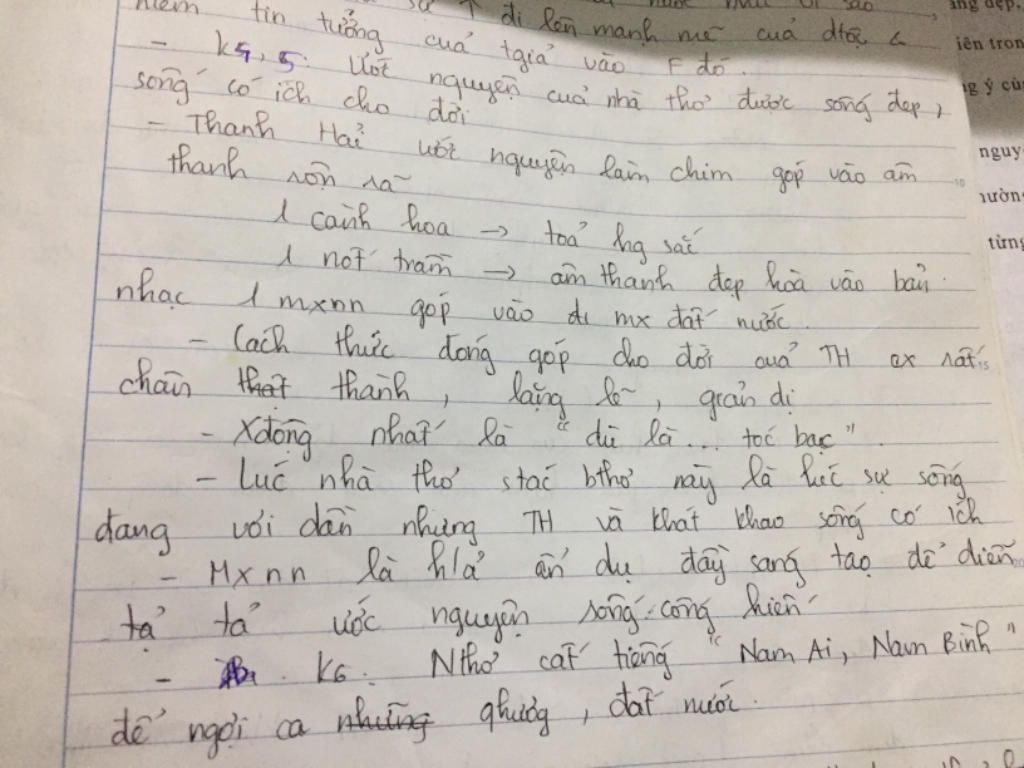 niềm tin tưởng của tgiả vào F đó.
sự ↑ đi lên mạnh mẽ của dtộc
- K4, 5: Ước nguyện của nhà thơ được sống đẹp,
sống có ích cho đời
- Thanh Hải ước nguyện làm chim góp vào âm
thanh rộn rã
1 cành hoa → toả hg sắc
1 nốt trầm → âm thanh đẹp hoà vào bản
nhạc 1 mxnn góp vào đi mx đất nước.
- Cách thức đóng góp cho đời của TH ax rất
chân that thành, lặng lẽ, giản dị
- Xđộng nhất là "dù là... tóc bạc".
- Lúc nhà thơ stác bthơ này là lúc sự sống
đang vơi dần nhưng TH và khát khao sống có ích
- Mxnn là h/ả ẩn dụ đầy sang tạo để diễn
tạ tả ước nguyện sống cống hiến
- K6. Nthơ cất tiếng "Nam Ai, Nam Bình"
để ngợi ca những qhương, đất nước.
ang đẹp.
iên tron
g ý cùn
nguy
hườn
từng